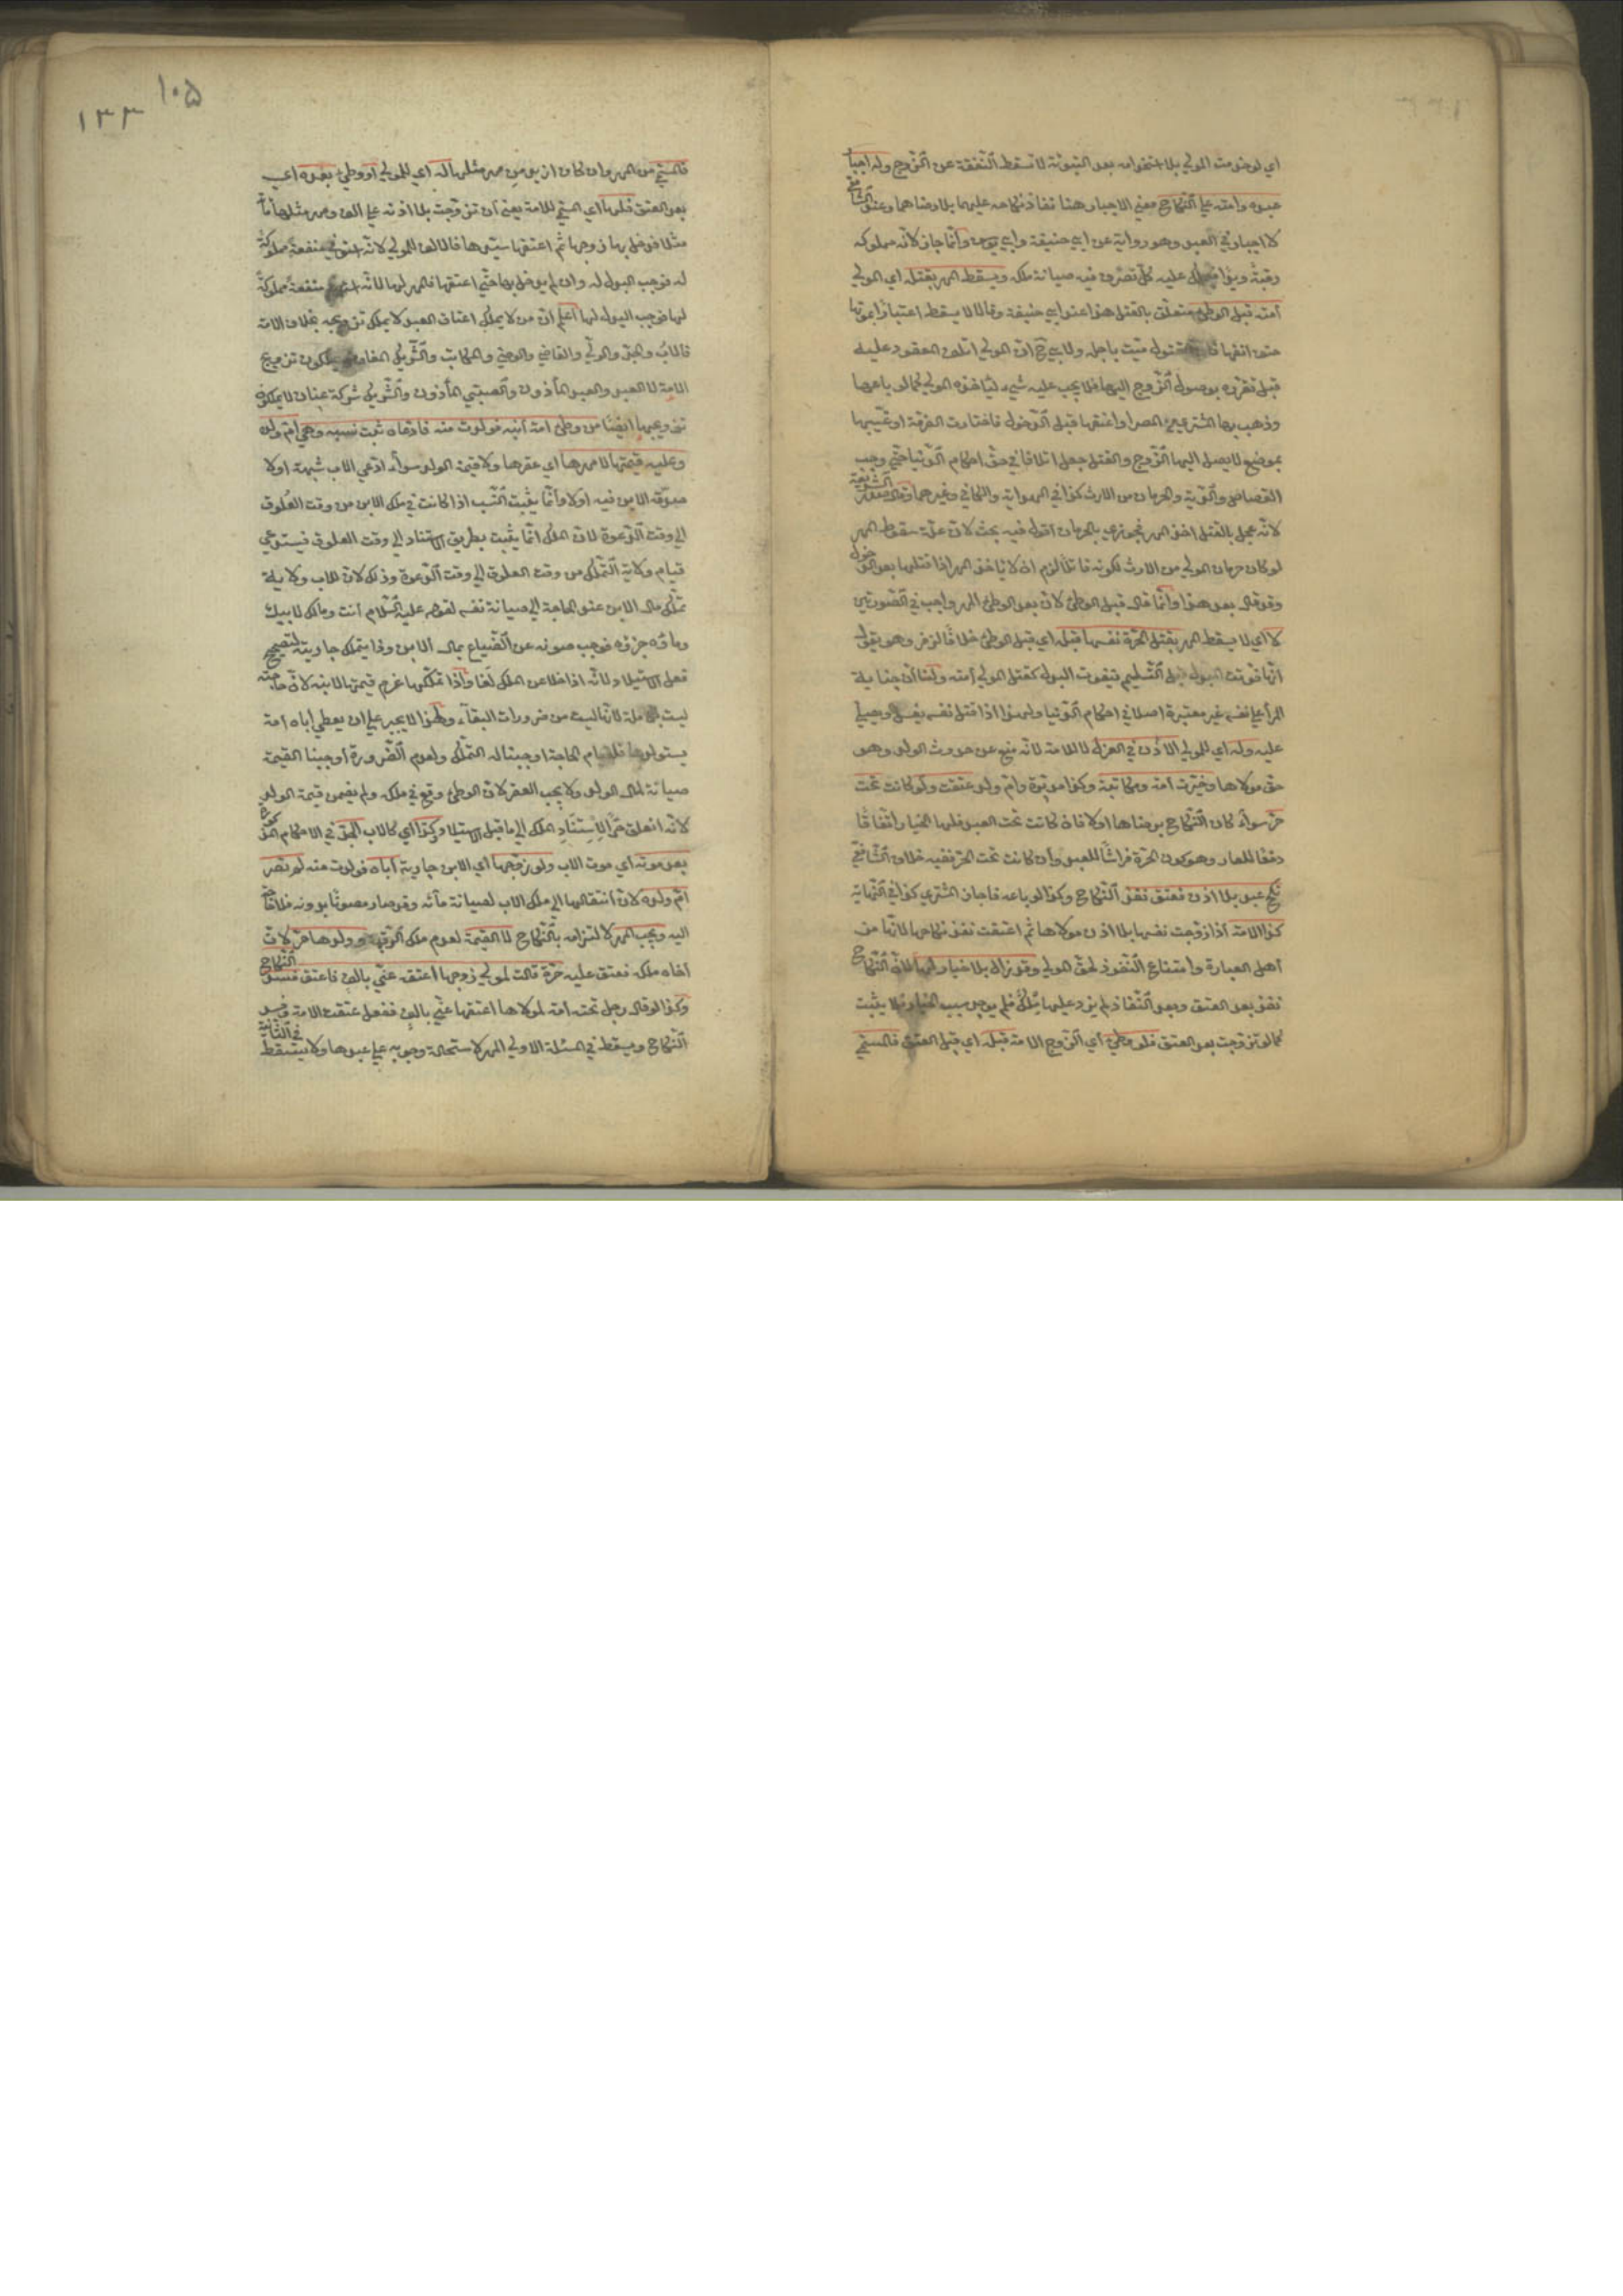 اي لو خدمت المولي بلا استخدامه بعد التبوئة لا تسقط النفقة عن الزوج وله اجبار
عبده وامته علي النكاح معني الاجبار هنا نفاذ نكاحه عليهما بلا رضاهما وعند الشافعي
لا اجبار في العبد وهو رواية عن ابي حنيفة وابي يوسف وانما جاز لانه مملوكه
رقبة ويدا فيملك عليه كل تصرف فيه صيانة ملكه ويسقط المهر بقتله اي المولي
امته قبل الوطئ متعلق بالقتل هذا عند ابي حنيفة وقالا لا يسقط اعتبارا بموتها
حتف انفها فان المقتول ميت باجله ولابي ح ان المولي اتلف المعقود عليه
قبل تقرره بوصول الزوج اليها فلا يجب عليه شيء لياخذه المولي كما لو باعها
وذهب بها المشتري من المصر او اعتقها قبل الدخول فاختارت الفرقة او غيبها
بموضع لا يصل اليها الزوج والقتل جعل اتلافا في حق احكام الدنيا حتي وجب
القصاص والدية والحرمان من الارث كذا في الهداية والكافي وغيرهما وقال صدر الشريعة
لانه عجل بالقتل اخذ المهر فجوزي بالحرمان اقول فيه بحث لان علة سقوط المهر
لو كان حرمان المولي من الارث لكونه قاتلا لزم ان لا ياخذ المهر اذا قتلها بعد الدخول
وقد قال بعد هذا وانما قال قبل الوطئ لان بعد الوطئ المهر واجب في الصورتين
لا اي لا يسقط المهر بقتل الحرة نفسها قبله اي قبل الوطئ خلافا لزفر وهو يقول
انها فوتت المبدل قبل التسليم فيفوت البدل كقتل المولي امته ولنا ان جناية
المرأ علي نفسه غير معتبرة اصلا في احكام الدنيا ولهذا اذا قتل نفسه يغسل ويصلي
عليه وله اي للمولي الاذن في العزل لا للامة لانه منع عن حدوث الولد وهو
حق مولاها وخيرت امة ومكاتبة وكذا مدبرة وام ولد عتقت ولو كانت تحت
حر سواء كان النكاح برضاها او لا فان كانت تحت العبد فلها الخيار اتفاقا
دفعا للعار وهو كون الحرة فراشا للعبد وان كانت تحت الحر ففيه خلاف الشافعي
نكح عبد بلا اذن فعتق نفذ النكاح وكذا لو باعه فاجاز المشتري كذا في النهاية
كذا الامة اذا زوجت نفسها بلا اذن مولاها ثم اعتقت نفذ نكاحها لانها من
اهل العبارة وامتناع النفوذ لحق المولي وقد زال بلا خيار لها لان النكاح
نفذ بعد العتق وبعد النفاذ لم يزد عليها ملك فلم يوجد سبب الخيار فلا يثبت
كما لو تزوجت بعد العتق فلو وطئ اي الزوج الامة قبله اي قبل العتق فالمسمي
فالمسمي من المهر وان كان ازيد من مهر مثلها له اي للمولي او وطئ بعده اي
بعد العتق فلها اي المسمي للامة يعني ان تزوجت بلا اذنه علي الف ومهر مثلها مائة
مثلا فدخل بها زوجها ثم اعتقها سيدها فالالف للمولي لانه استوفي منفعة مملوكة
له فوجب البدل له وان لم يدخل بها حتي اعتقها فالمهر لها لانه استوفي منفعة مملوكة
لها فوجب البدل لها اعلم ان من لا يملك اعتاق العبد لا يملك تزويجه بخلاف الامة
فالاب والجد والولي والقاضي والوصي والمكاتب والشريك المفاوض يملكون تزويج
الامة لا العبد والعبد المأذون والصبي المأذون والشريك شركة عنان لا يملكون
تزويجها ايضا من وطئ امة ابنه فولدت منه فادعاه ثبت نسبه وهي ام ولده
وعليه قيمتها لا مهرها اي عقرها ولا قيمة الولد سواء ادعي الاب شبهة او لا
صدقه الابن فيه او لا وانما يثبت النسب اذا كانت في ملك الابن من وقت العلوق
الي وقت الدعوة لان الملك انما يثبت بطريق الاستناد الي وقت العلوق فيستدعي
قيام ولاية التملك من وقت العلوق الي وقت الدعوة وذلك لان للاب ولاية
تملك مال الابن عند الحاجة الي صيانة نفسه لقوله عليه السلام انت ومالك لابيك
وماؤه جزؤه فوجب صونه عن الضياع بمال الابن وانما يتملك جاريته لتصحيح
فعل الاستيلاد لانه اذا خلا عن الملك لغا واذا تملكها غرم قيمتها لابنه لان حاجته
ليست بكاملة لانها ليست من ضرورات البقاء ولهذا لا يجبر علي ان يعطي اباه امة
يستولدها فلقيام الحاجة اوجبنا له التملك ولعدم الضرورة اوجبنا القيمة
صيانة لمال الولد ولا يجب العقر لان الوطئ وقع في ملكه ولم يضمن قيمة الولد
لانه انعلق حرا لاستناد الملك الي ما قبل الاستيلاد وكذا اي كالاب الجد في الاحكام المذكورة
بعد موته اي موت الاب ولو زوجها اي الابن جارية اباه فولدت منه لم تصر
ام ولده لان انتقالها الي ملك الاب لصيانة مائه وقد صار مصونا بدونه فلا حاجة
اليه ويجب المهر لالتزامه بالنكاح لا القيمة لعدم ملك الرقبة وولدها حر لان
اخاه ملكه فعتق عليه حرة قالت لمولي زوجها اعتقه عني بالف فاعتق فسد النكاح
وكذا لو قال رجل تحته امة لمولاها اعتقها عني بالف ففعل عتقت الامة وفسد
النكاح ويسقط في المسئلة الاولي المهر لاستحالة وجوبه علي عبدها ولا يسقط في الثانية
١٠٥
١٣٣